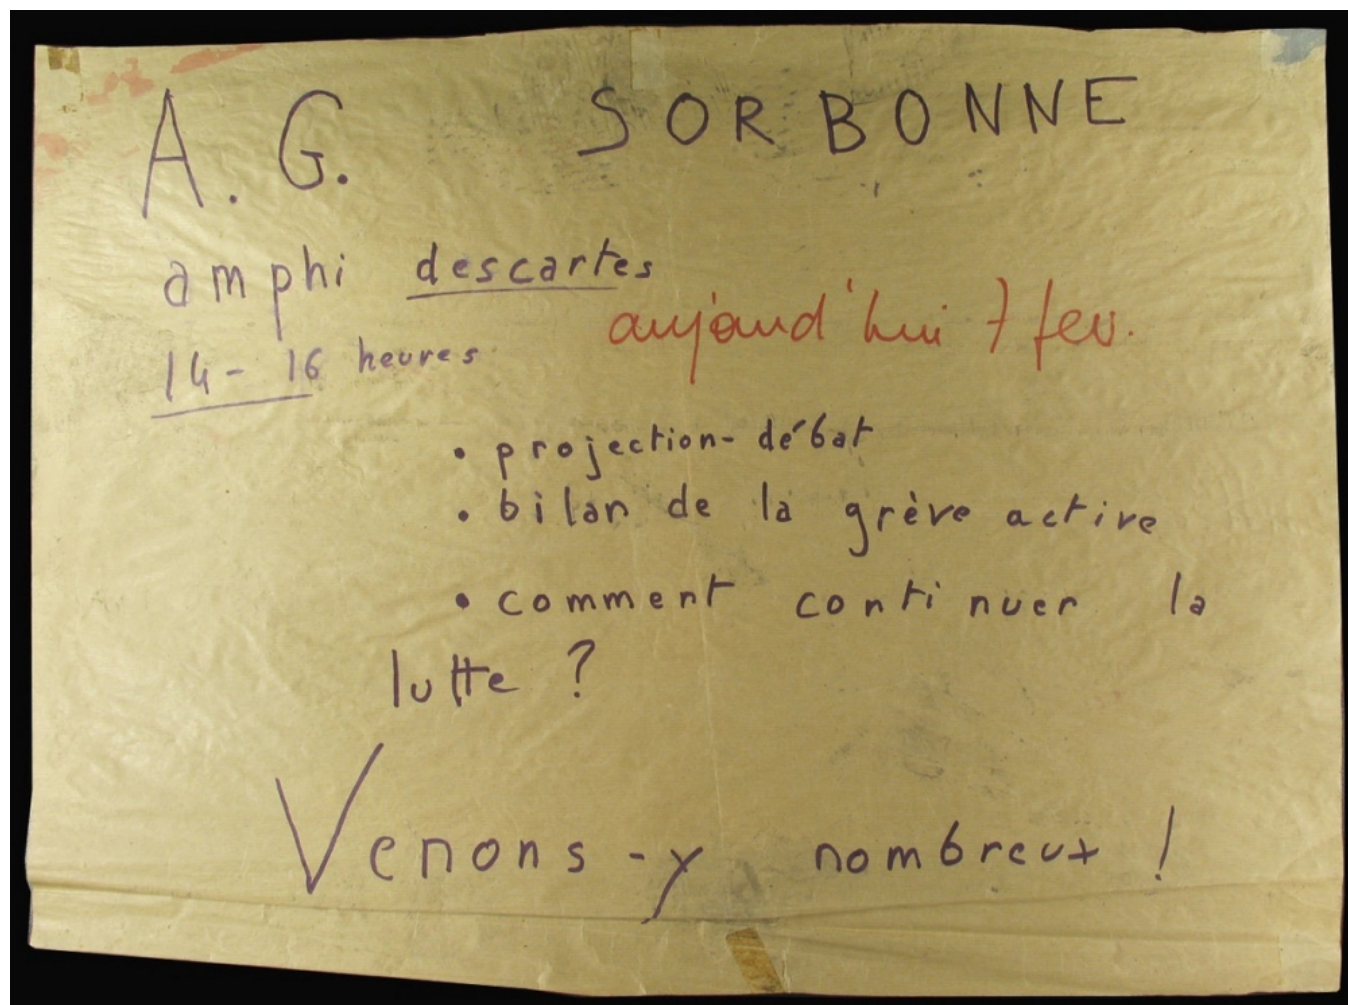 A. G. SORBONNE
amphi descartes
aujourd'hui 7 fev.
14 - 16 heures
• projection - débat
• bilan de la grève active
• comment continuer la
lutte ?
Venons-y nombreux !